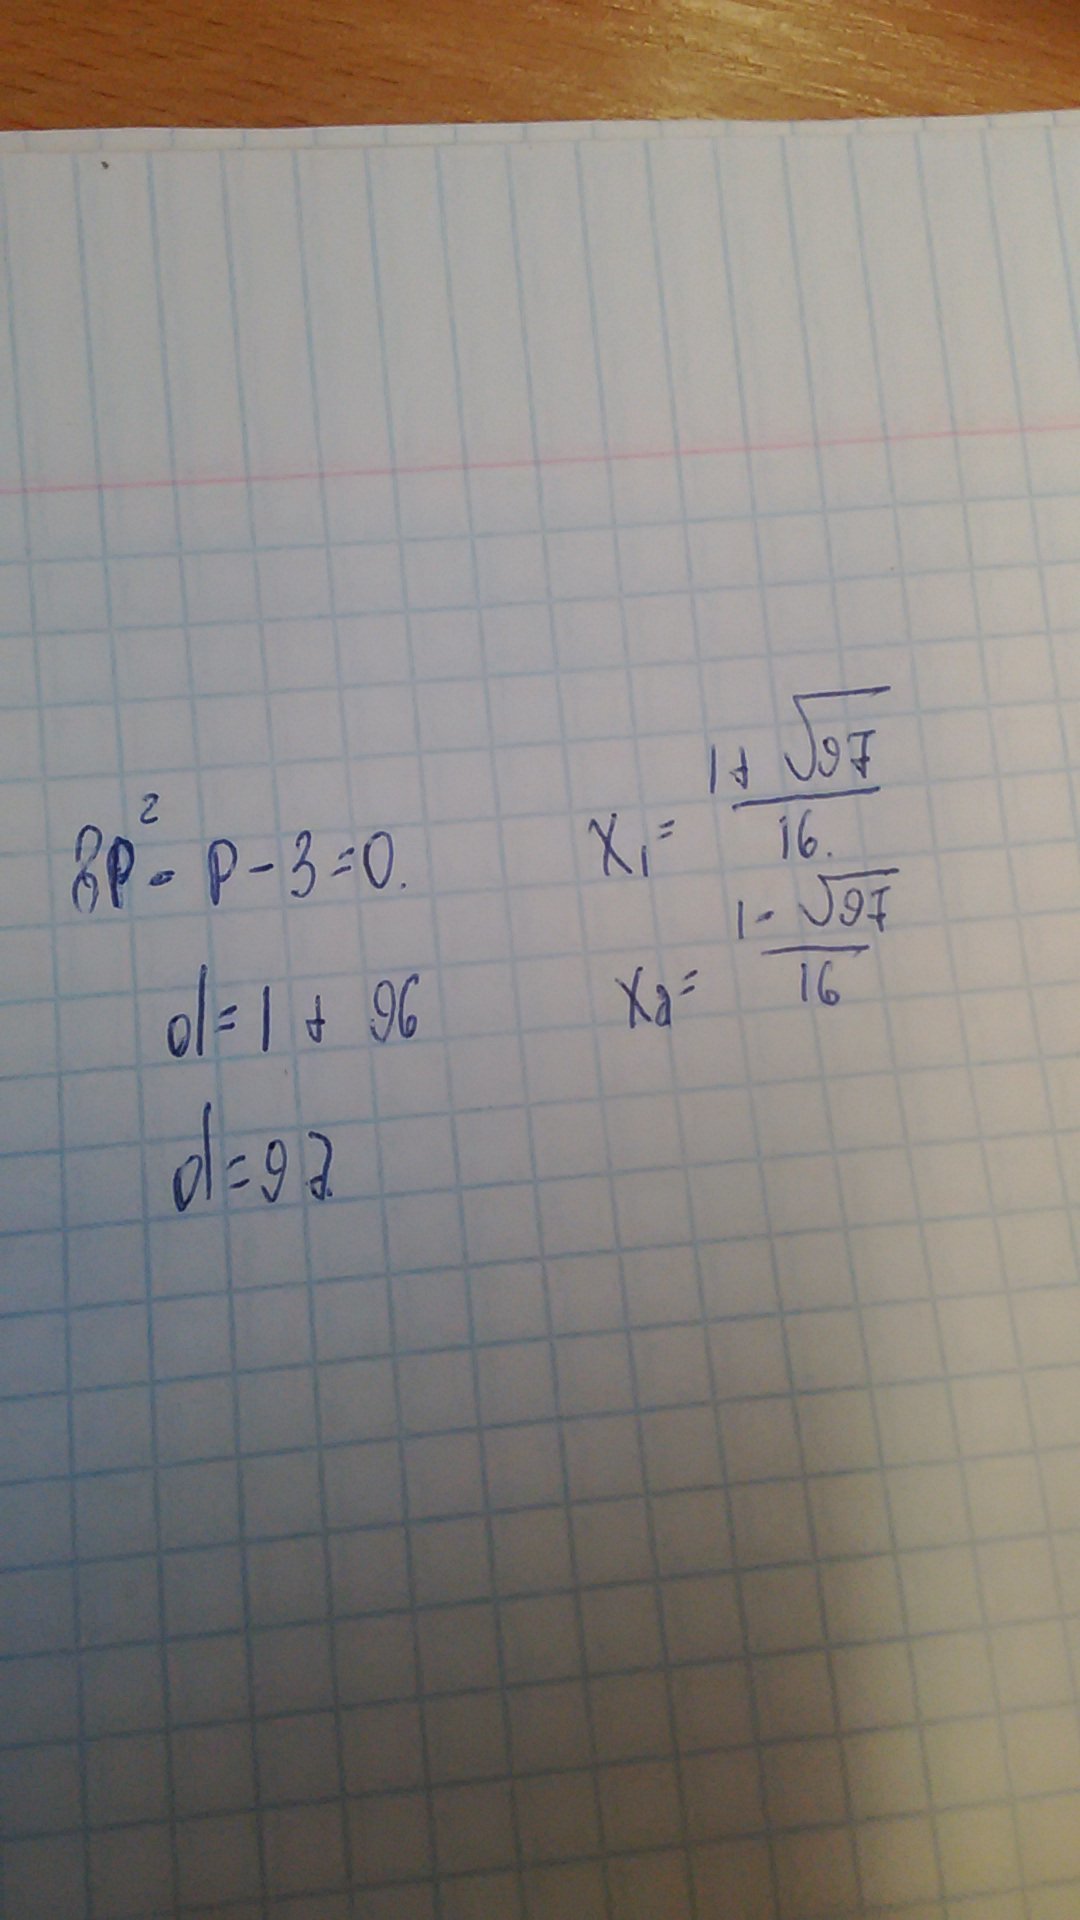 8P² - P - 3 = 0.
d = 1 + 96
d = 97
X₁ = (1 + √97) / 16.
X₂ = (1 - √97) / 16